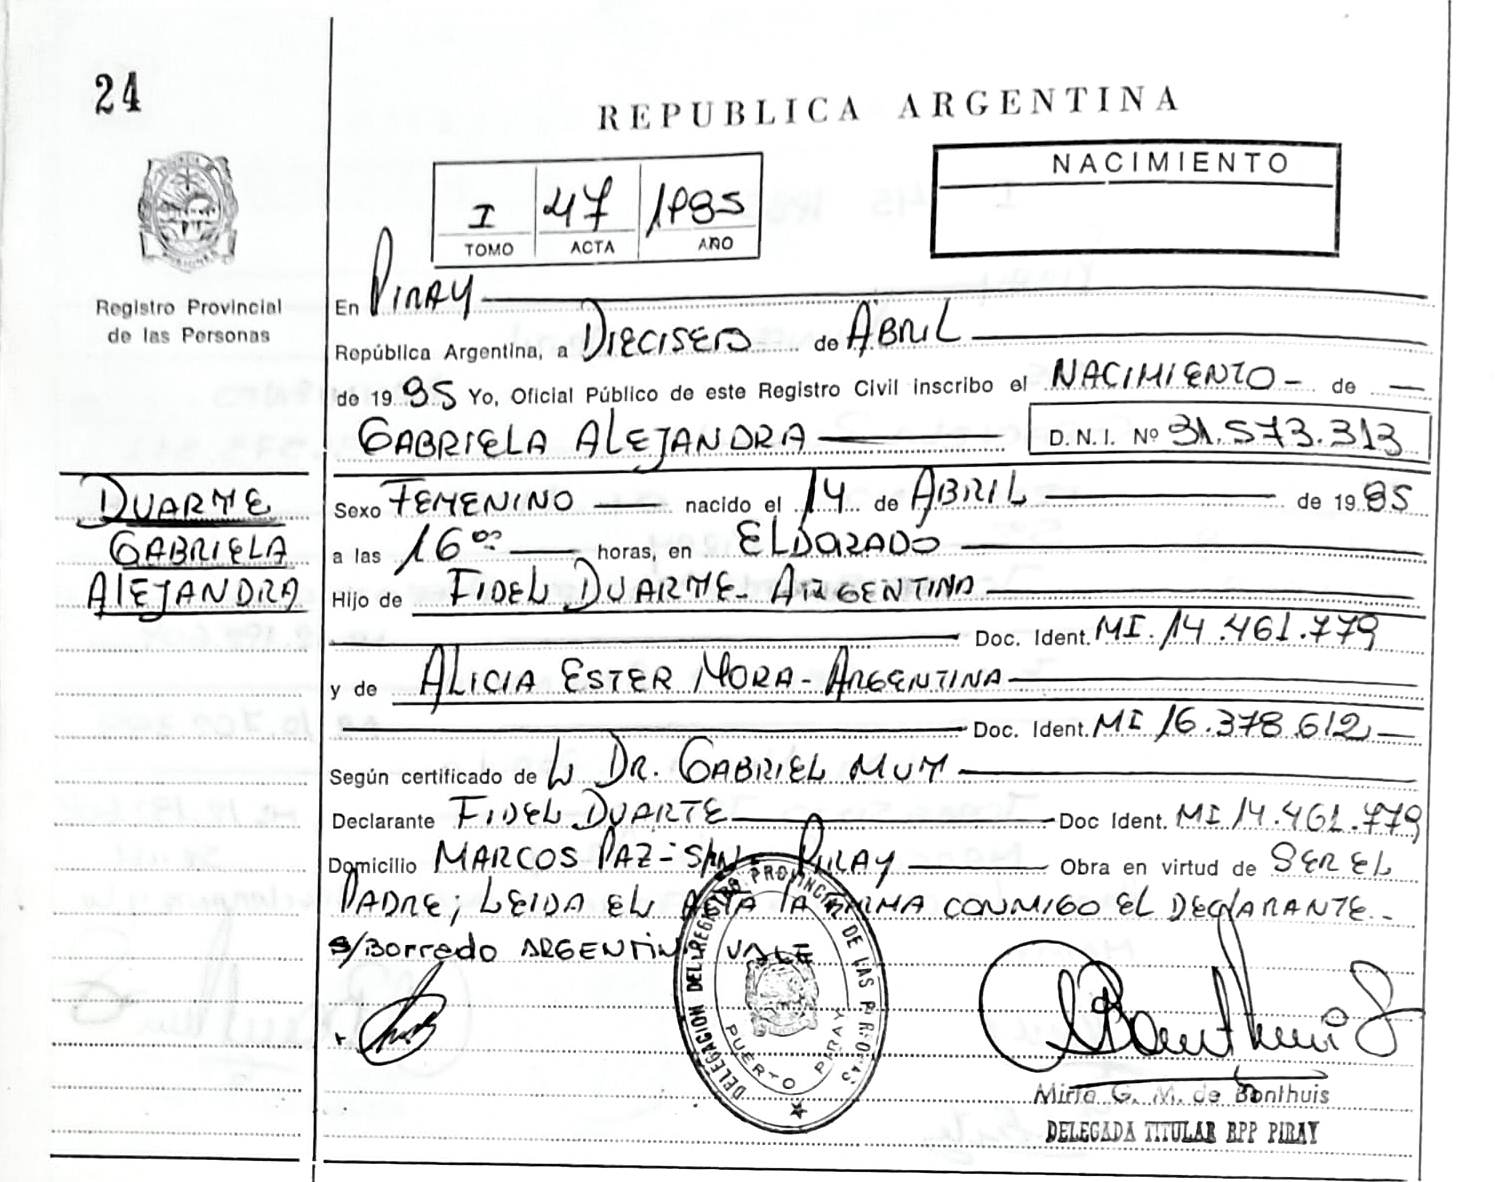 24
REPUBLICA ARGENTINA
NACIMIENTO
I 47 1985
TOMO ACTA AÑO
Registro Provincial
de las Personas
En PIRAY
República Argentina, a DIECISEIS de ABRIL
de 1985 Yo, Oficial Público de este Registro Civil inscribo el NACIMIENTO - de —
GABRIELA ALEJANDRA — D.N.I. Nº 31.573.313
DUARTE
GABRIELA
ALEJANDRA
Sexo FEMENINO — nacido el 14 de ABRIL — de 1985
a las 16 00 — horas, en ELDORADO —
Hijo de FIDEL DUARTE - ARGENTINA —
Doc. Ident. MI. 14.461.779
y de ALICIA ESTER MORA - ARGENTINA —
Doc. Ident. MI 16.378.612 —
Según certificado de DR. GABRIEL —
Declarante FIDEL DUARTE — Doc Ident. MI 14.461.779
Domicilio MARCOS PAZ - S/Nº - PIRAY — Obra en virtud de SER EL
PADRE, LEIDA EL ACTA LA FIRMA CONMIGO EL DECLARANTE -
s/Borredo ARGENTINA VALE
DELEGACION DEL REGISTRO PROVINCIAL DE LAS PERSONAS
PUERTO PIRAY
Mirta G. M. de Bonthuis
DELEGADA TITULAR RPP PIRAY